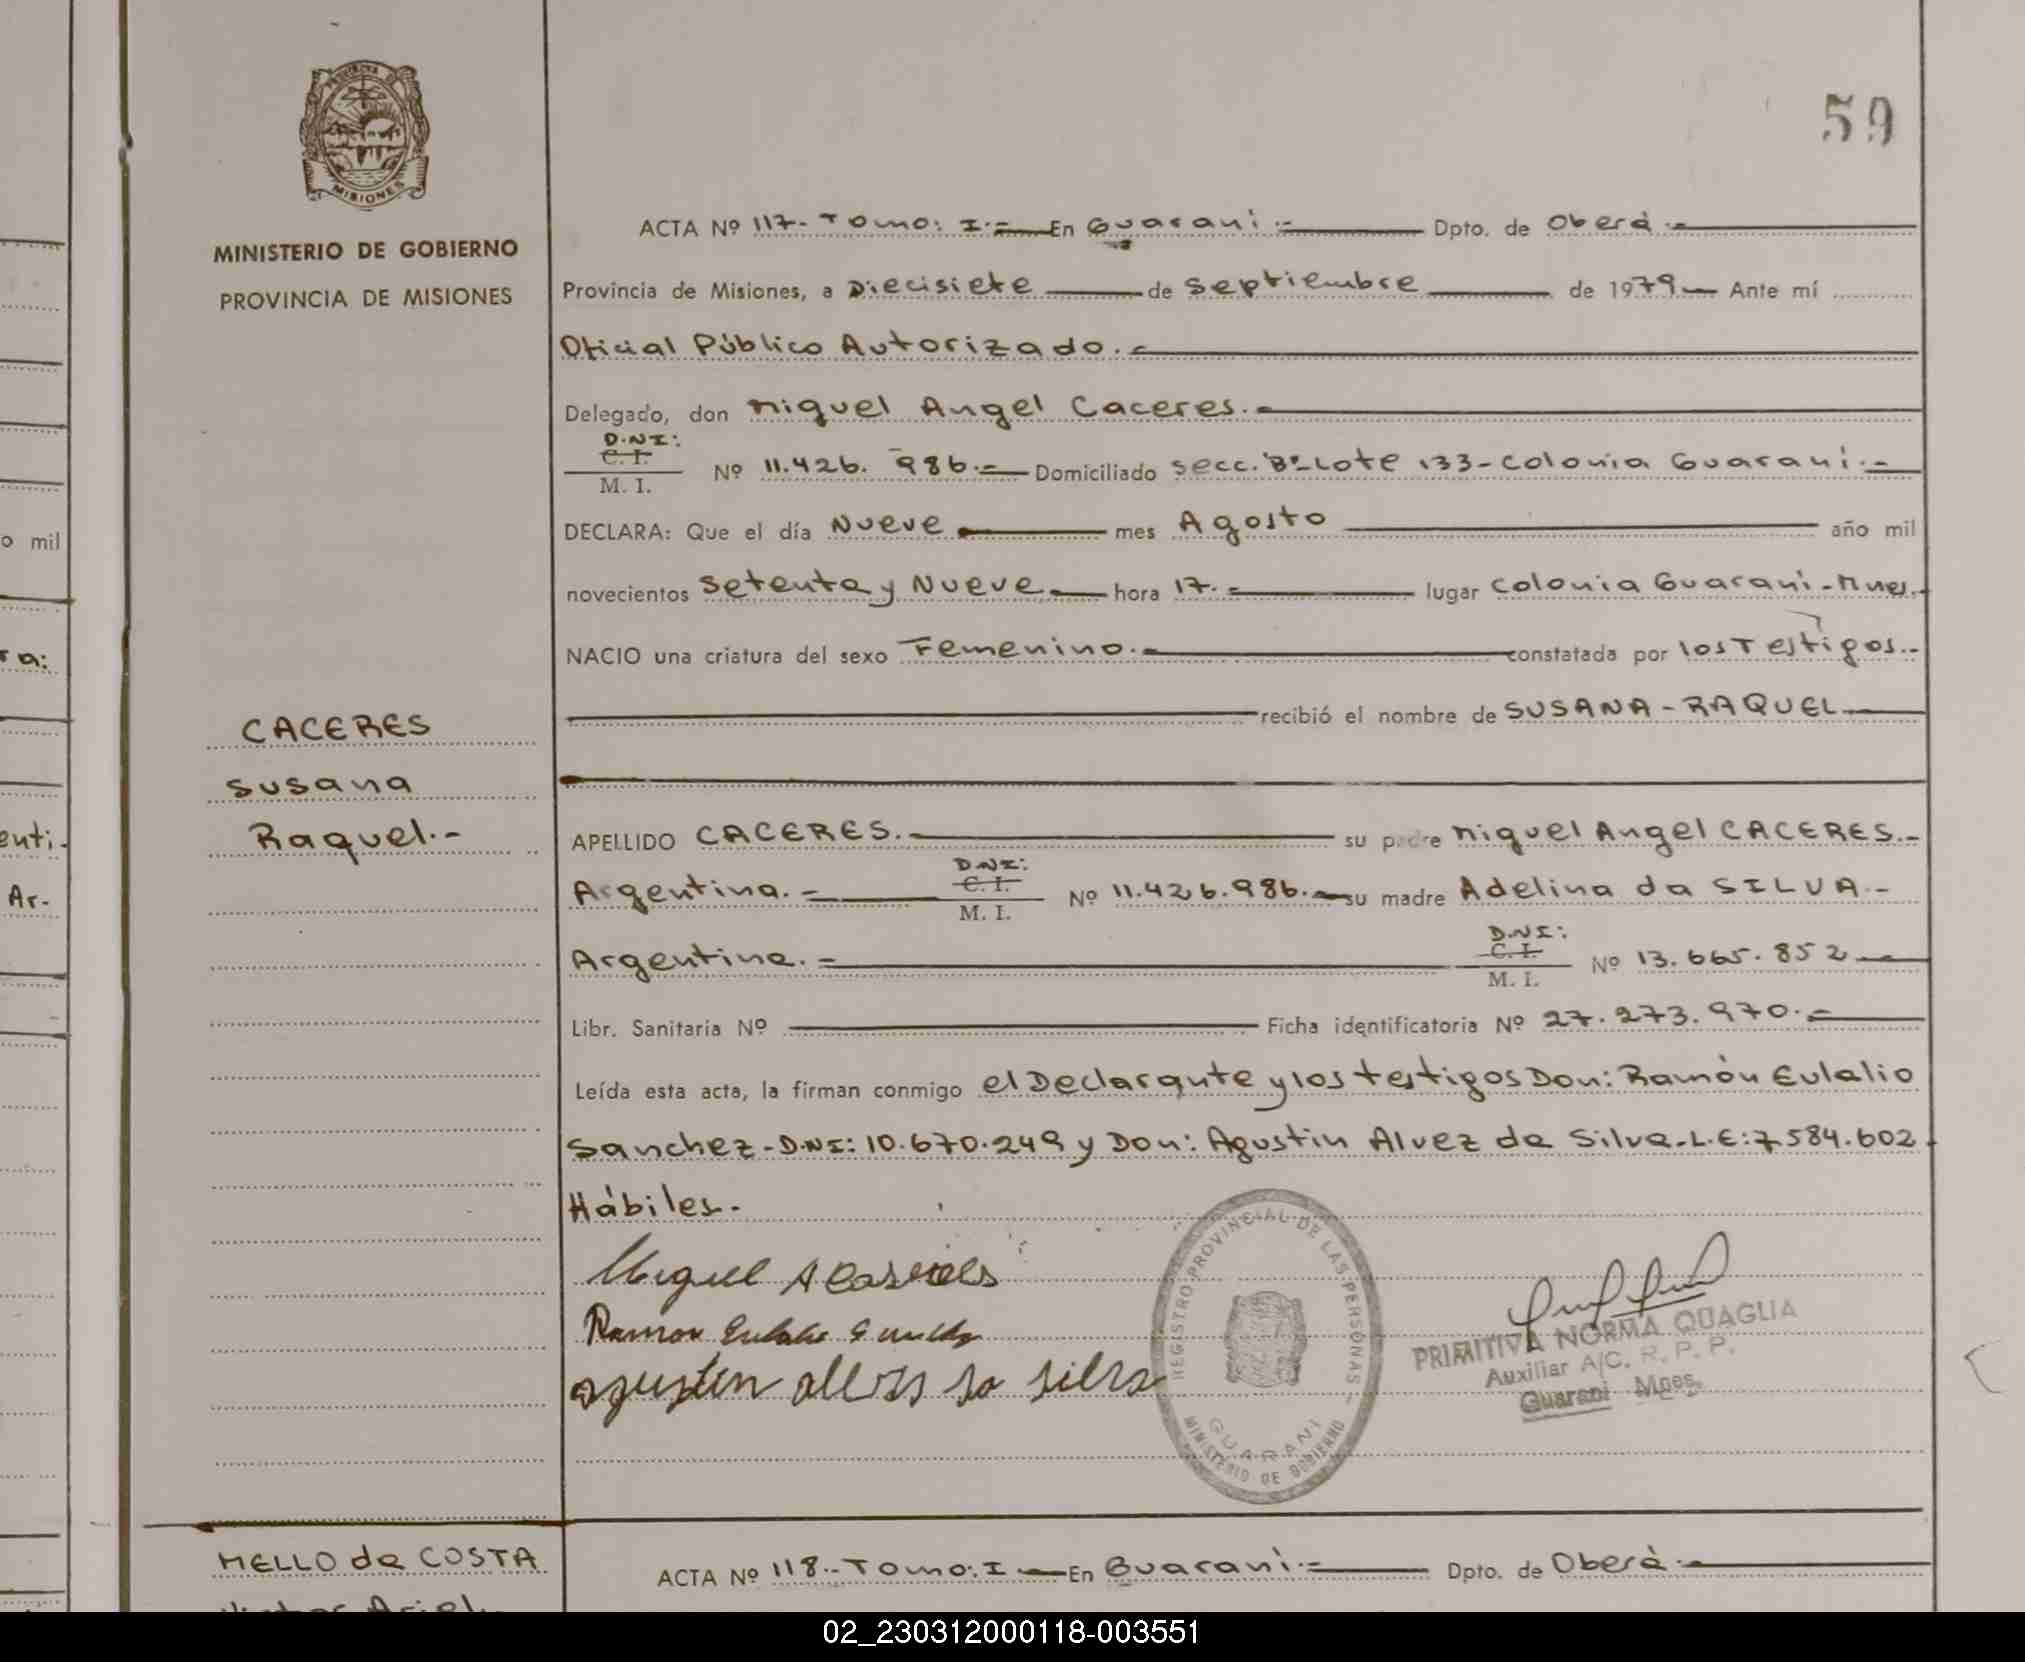 PROVINCIA DE
MISIONES
MINISTERIO DE GOBIERNO
PROVINCIA DE MISIONES
59
ACTA Nº 117.- Tomo: I.- En Guaraní.- Dpto. de Oberá.-
Provincia de Misiones, a Diecisiete de Septiembre de 1979 Ante mí
Oficial Público Autorizado.-
Delegado, don Miguel Angel Caceres.-
D.N.I:
C. I.
M. I.
Nº 11.426.986.- Domiciliado Secc. 8ª Lote 133-Colonia Guaraní.-
DECLARA: Que el día Nueve mes Agosto año mil
novecientos Setenta y Nueve hora 17.- lugar Colonia Guaraní-Mnes.
NACIO una criatura del sexo Femenino.- constatada por los Testigos.-
recibió el nombre de SUSANA-RAQUEL
CACERES
Susana
Raquel.-
APELLIDO CACERES.- su padre Miguel Angel CACERES.-
D.N.I:
C. I.
M. I.
Argentina.- Nº 11.426.986.- su madre Adelina da SILVA.-
D.N.I:
C. I.
M. I.
Argentina.- Nº 13.665.852
Libr. Sanitaria Nº Ficha identificatoria Nº 27.273.970.-
Leída esta acta, la firman conmigo el Declarante y los testigos Don: Ramón Eulalio
Sanchez-D.N.I: 10.670.249 y Don: Agustin Alvez da Silva-L.E: 7.584.602
Hábiles.-
Miguel A Caseres
Ramon Eulalio Sanchez
agusten alves da silva
REGISTRO PROVINCIAL DE LAS PERSONAS
GUARANI
MINISTERIO DE GOBIERNO
PRIMITIVA NORMA QUAGLIA
Auxiliar A/C. R. P. P.
Guaraní Mnes.
MELLO da COSTA
ACTA Nº 118.- Tomo: I En Guaraní.- Dpto. de Oberá.-
o mil
ra:
enti.
Ar-
02_230312000118-003551